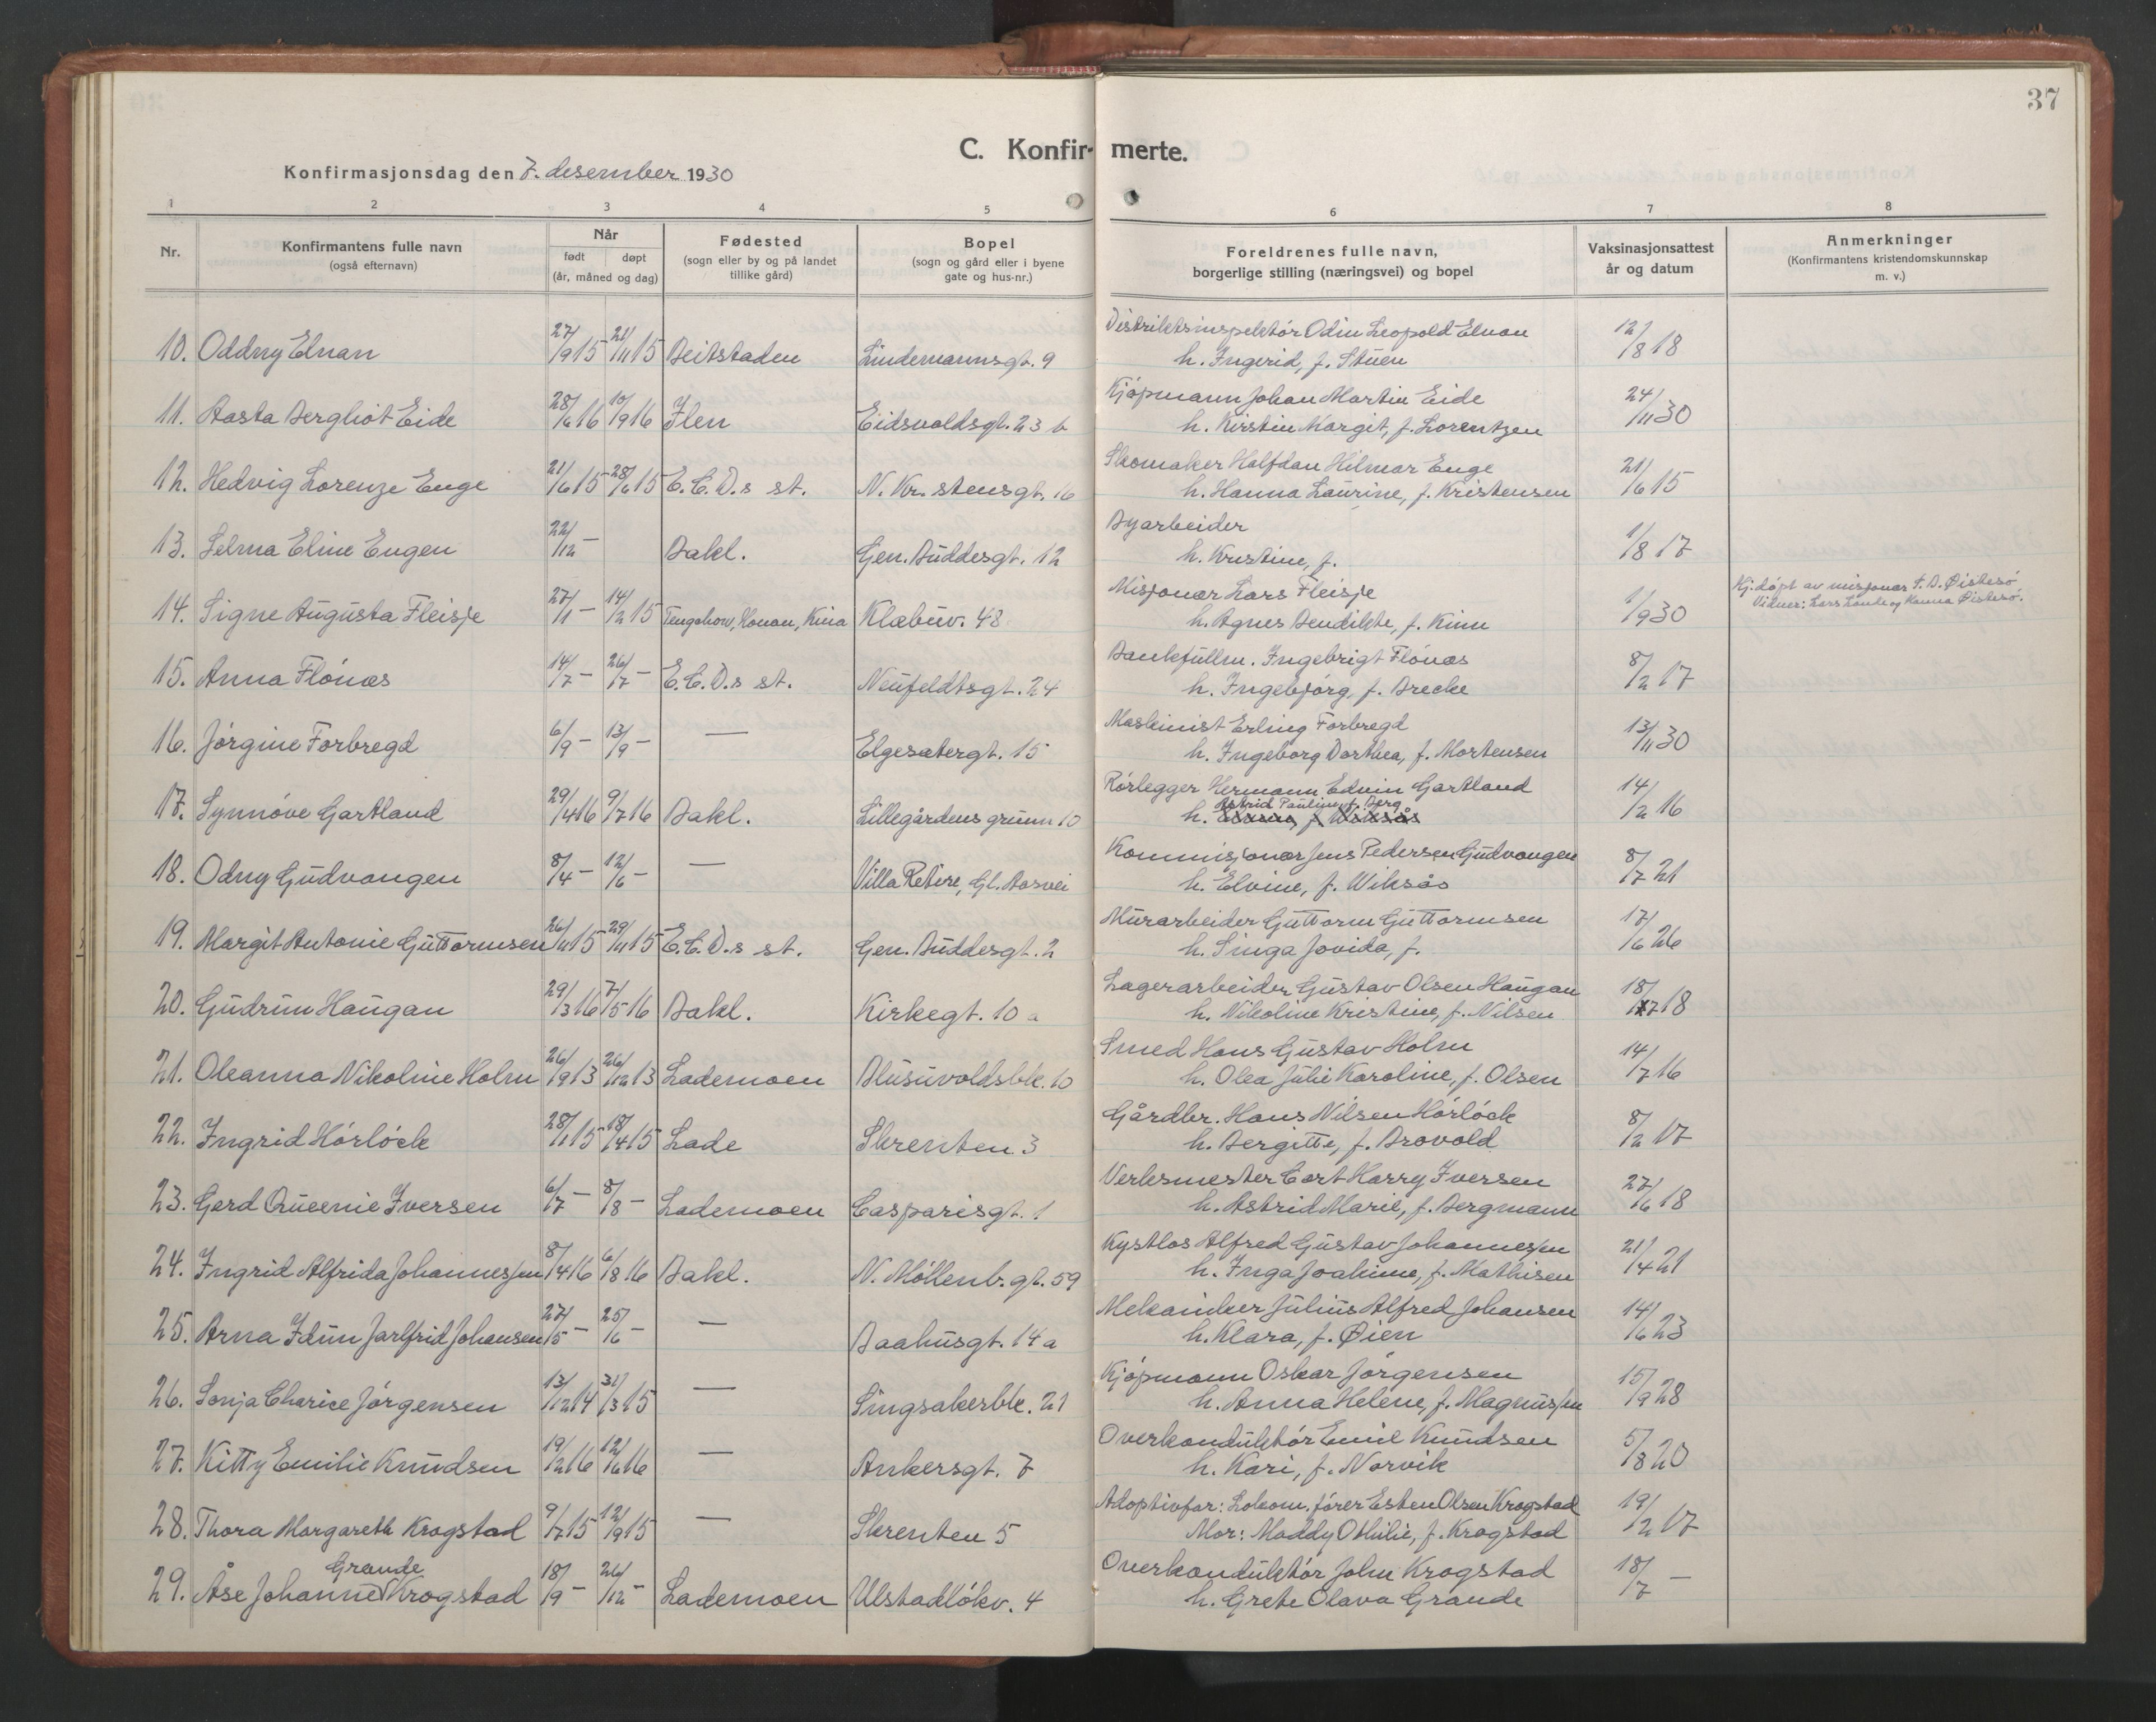 37
C. Konfirmerte.
Konfirmasjonsdag den 7. desember 1930
1 2 3 4 5 6 7 8
Nr. Konfirmantens fulle navn (også efternavn) Når født døpt (år, måned og dag) Fødested (sogn eller by og på landet tillike gård) Bopel (sogn og gård eller i byene gate og hus-nr.) Foreldrenes fulle navn, borgerlige stilling (næringsvei) og bopel Vaksinasjonsattest år og datum Anmerkninger (Konfirmantens kristendomskunnskap m. v.)
10. Oddny Elnan 27/9 15 21/11 15 Beitstaden Lindemannsgt. 9 Distriktsinspektör Odin Leopold Elnan 12/8 18
h. Ingerid, f. Stuen
11. Aasta Bergliot Eide 28/6 16 10/9 16 Ilen Eidsvoldsgt. 23 b Kjöpmann Johan Martin Eide 24/11 30
h. Kirstin Margit, f. Lorentzen
12. Hedvig Lorenze Enge 21/6 15 28/6 15 E.C.D.s st. N. Kr.stensgt. 16 Skomaker Halfdan Hilmar Enge 21/6 15
h. Hanna Laurine, f. Kristensen
13. Selma Eline Engen 22/12 - Bakl. Gen. Buddesgt. 12 Byarbeider 1/8 17
h. Kristine, f.
14. Signe Augusta Fleisje 27/1 - 14/2 15 Tengchow, Honan, Kina Klæbuv. 48 Misjonær Lars Fleisje 1/9 30 Kj.döpt av misjonær
h. Agnes Bendikte, f. Kinn Vidner: Lars Lande og Hanna
15. Anna Flönæs 14/7 - 26/7 - E.C.D.s st. Neufeldtsgt. 24 Bankfullm. Ingebrigt Flönæs 8/2 17
h. Ingebjörg, f. Brecke
16. Jörgine Forbregd 6/9 - 13/9 - — Elgesætergt. 15 Maskinist Erling Forbregd 13/11 30
h. Ingeborg Dorthea, f. Mortensen
17. Synnöve Gartland 29/4 16 9/7 16 Bakl. Lillegårdens grunn 10 Rörlegger Hermann Edvin Gartland 14/2 16
Astrid Pauline, f. Berg
h. Elvine, f. Wiksås
18. Odny Gudvangen 8/4 - 12/6 - — Villa Retire, Gl. Aasvei Kommisjonær Jens Pedersen Gudvangen 8/7 21
h. Elvine, f. Wiksås
19. Margit Antonie Guttormsen 26/4 15 29/11 15 E.C.D.s st. Gen. Buddesgt. 2 Murarbeider Guttorm Guttormsen 17/6 26
h. Singa Jovida, f.
20. Gudrun Haugan 29/3 16 7/5 16 Bakl. Kirkegt. 10 a Lagerarbeider Gustav Olsen Haugan 18/7 18
h. Nikoline Kristine, f. Nilsen
21. Oleanna Nikoline Holm 26/9 13 26/12 13 Lademoen Blusuvoldsbk. 10 Smed Hans Gustav Holm 14/7 16
h. Olea Julie Karoline, f. Olsen
22. Ingrid Hörlöck 28/1 15 18/4 15 Lade Skrenten 3 Gårdbr. Hans Nilsen Hörlöck 8/2 17
h. Bergitte, f. Brovold
23. Gerd Queenie Iversen 6/7 - 8/8 - Lademoen Casparisgt. 1 Verksmester Cort Harry Iversen 27/6 18
h. Astrid Marie, f. Bergmann
24. Ingrid Alfrida Johannessen 8/4 16 6/8 16 Bakl. N. Möllenb.gt. 59 Kystlos Alfred Gustav Johannessen 21/4 21
h. Inga Joakime, f. Mathisen
25. Arna Idun Jarlfrid Johansen 27/5 - 25/6 - — Baahusgt. 14 a Mekaniker Julius Alfred Johansen 14/6 23
h. Klara, f. Øien
26. Sonja Charice Jörgensen 13/12 14 31/3 15 — Singsakerbk. 21 Kjöpmann Oskar Jörgensen 15/9 28
h. Anna Helene, f. Magnussen
27. Kitty Emilie Knudsen 19/2 16 12/6 16 — Ankersgt. 7 Overkonduktör Emil Knudsen 5/8 20
h. Kari, f. Narvik
28. Thora Margareth Krogstad 9/7 15 12/9 15 — Skrenten 5 Adoptivfar: Lokom. förer Esten Olsen Krogstad 19/2 17
Mor: Maddy Othilie, f. Krogstad
Grande
29. Åse Johanne Krogstad 18/9 - 26/12 - Lademoen Ulstadlökv. 4 Overkonduktör John Krogstad 18/7 -
h. Grete Olava Grande